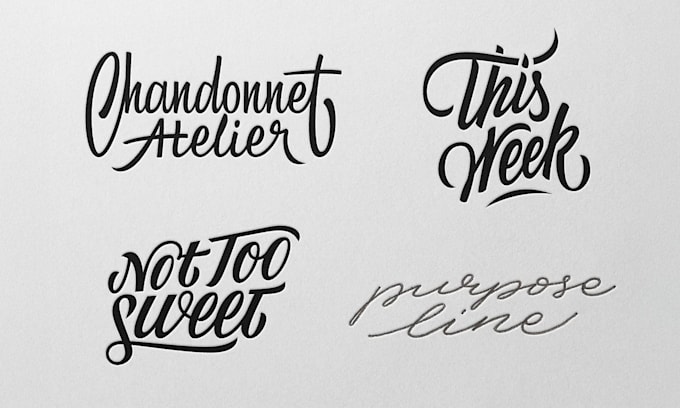 Chandonnet
Atelier
This
Week
Not Too
Sweet
purpose
line